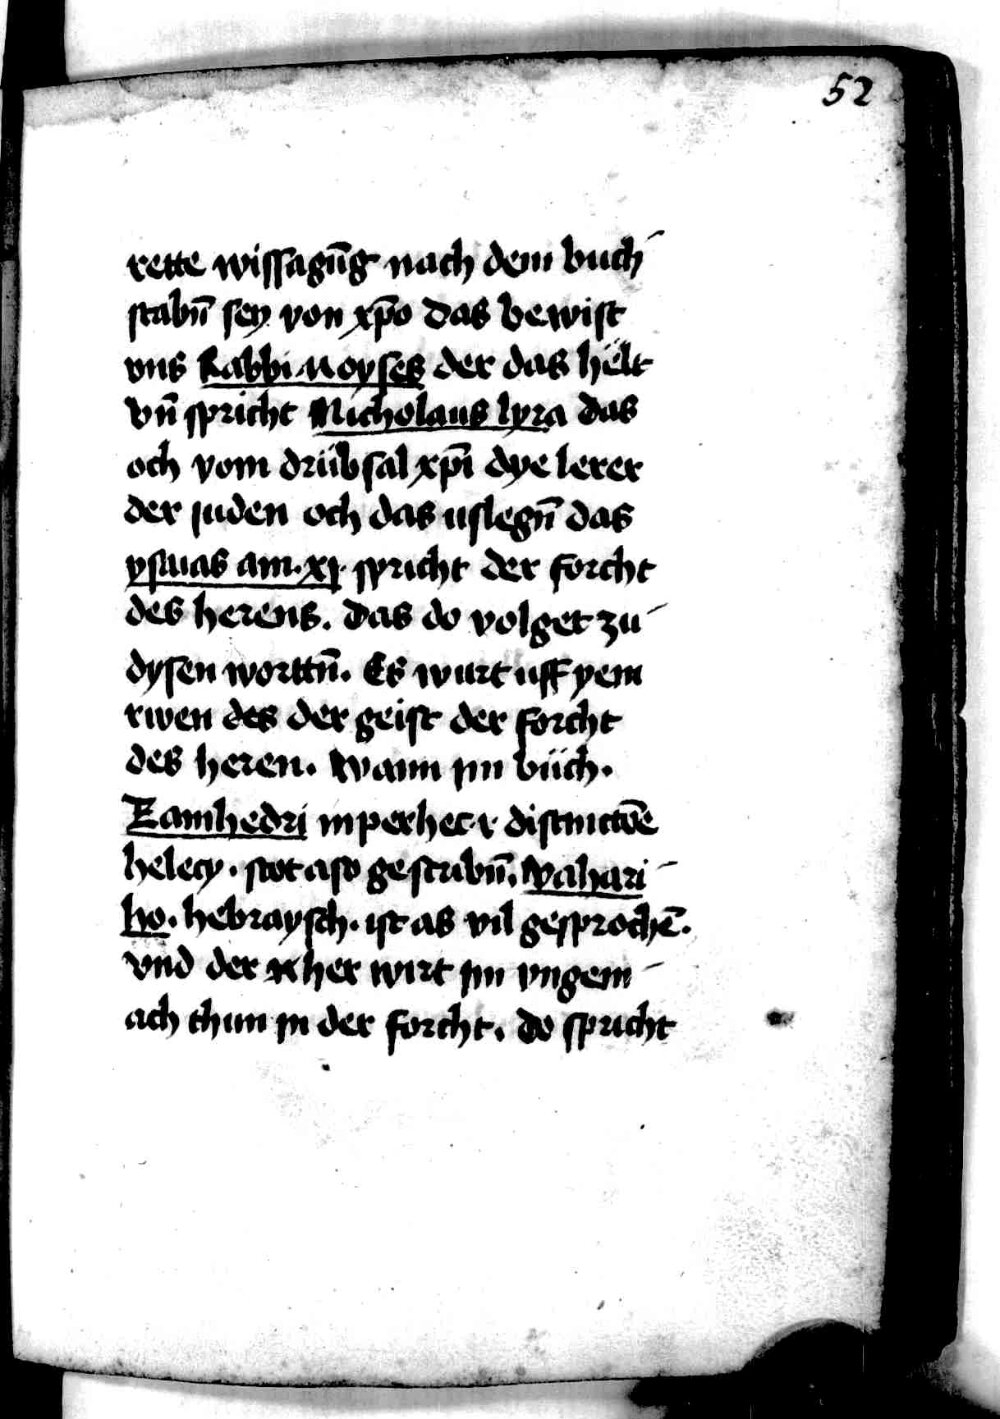 52
rette wissagūg nach dem buch
stabn̄ sey von xp̄o das bewist
vns Rabbi Moyses der das helt
vn̄ spricht Nicholaus lyra das
och vom drübsal xp̄i dye lerer
der juden och das uslegn̄ das
ysaias am. xj. spricht der forcht
des herens. das do volget zu
dysen worttn̄. Es wurt uff yem
rwen des der geist der forcht
des heren. Wann jm büch.
perhec distinctōe
helecy. stot also gescribn̄. Wahari
ho. hebraysch. ist as vil gesprochē.
vnd der her wirt jm vngem
ach thun jn der forcht. do spricht